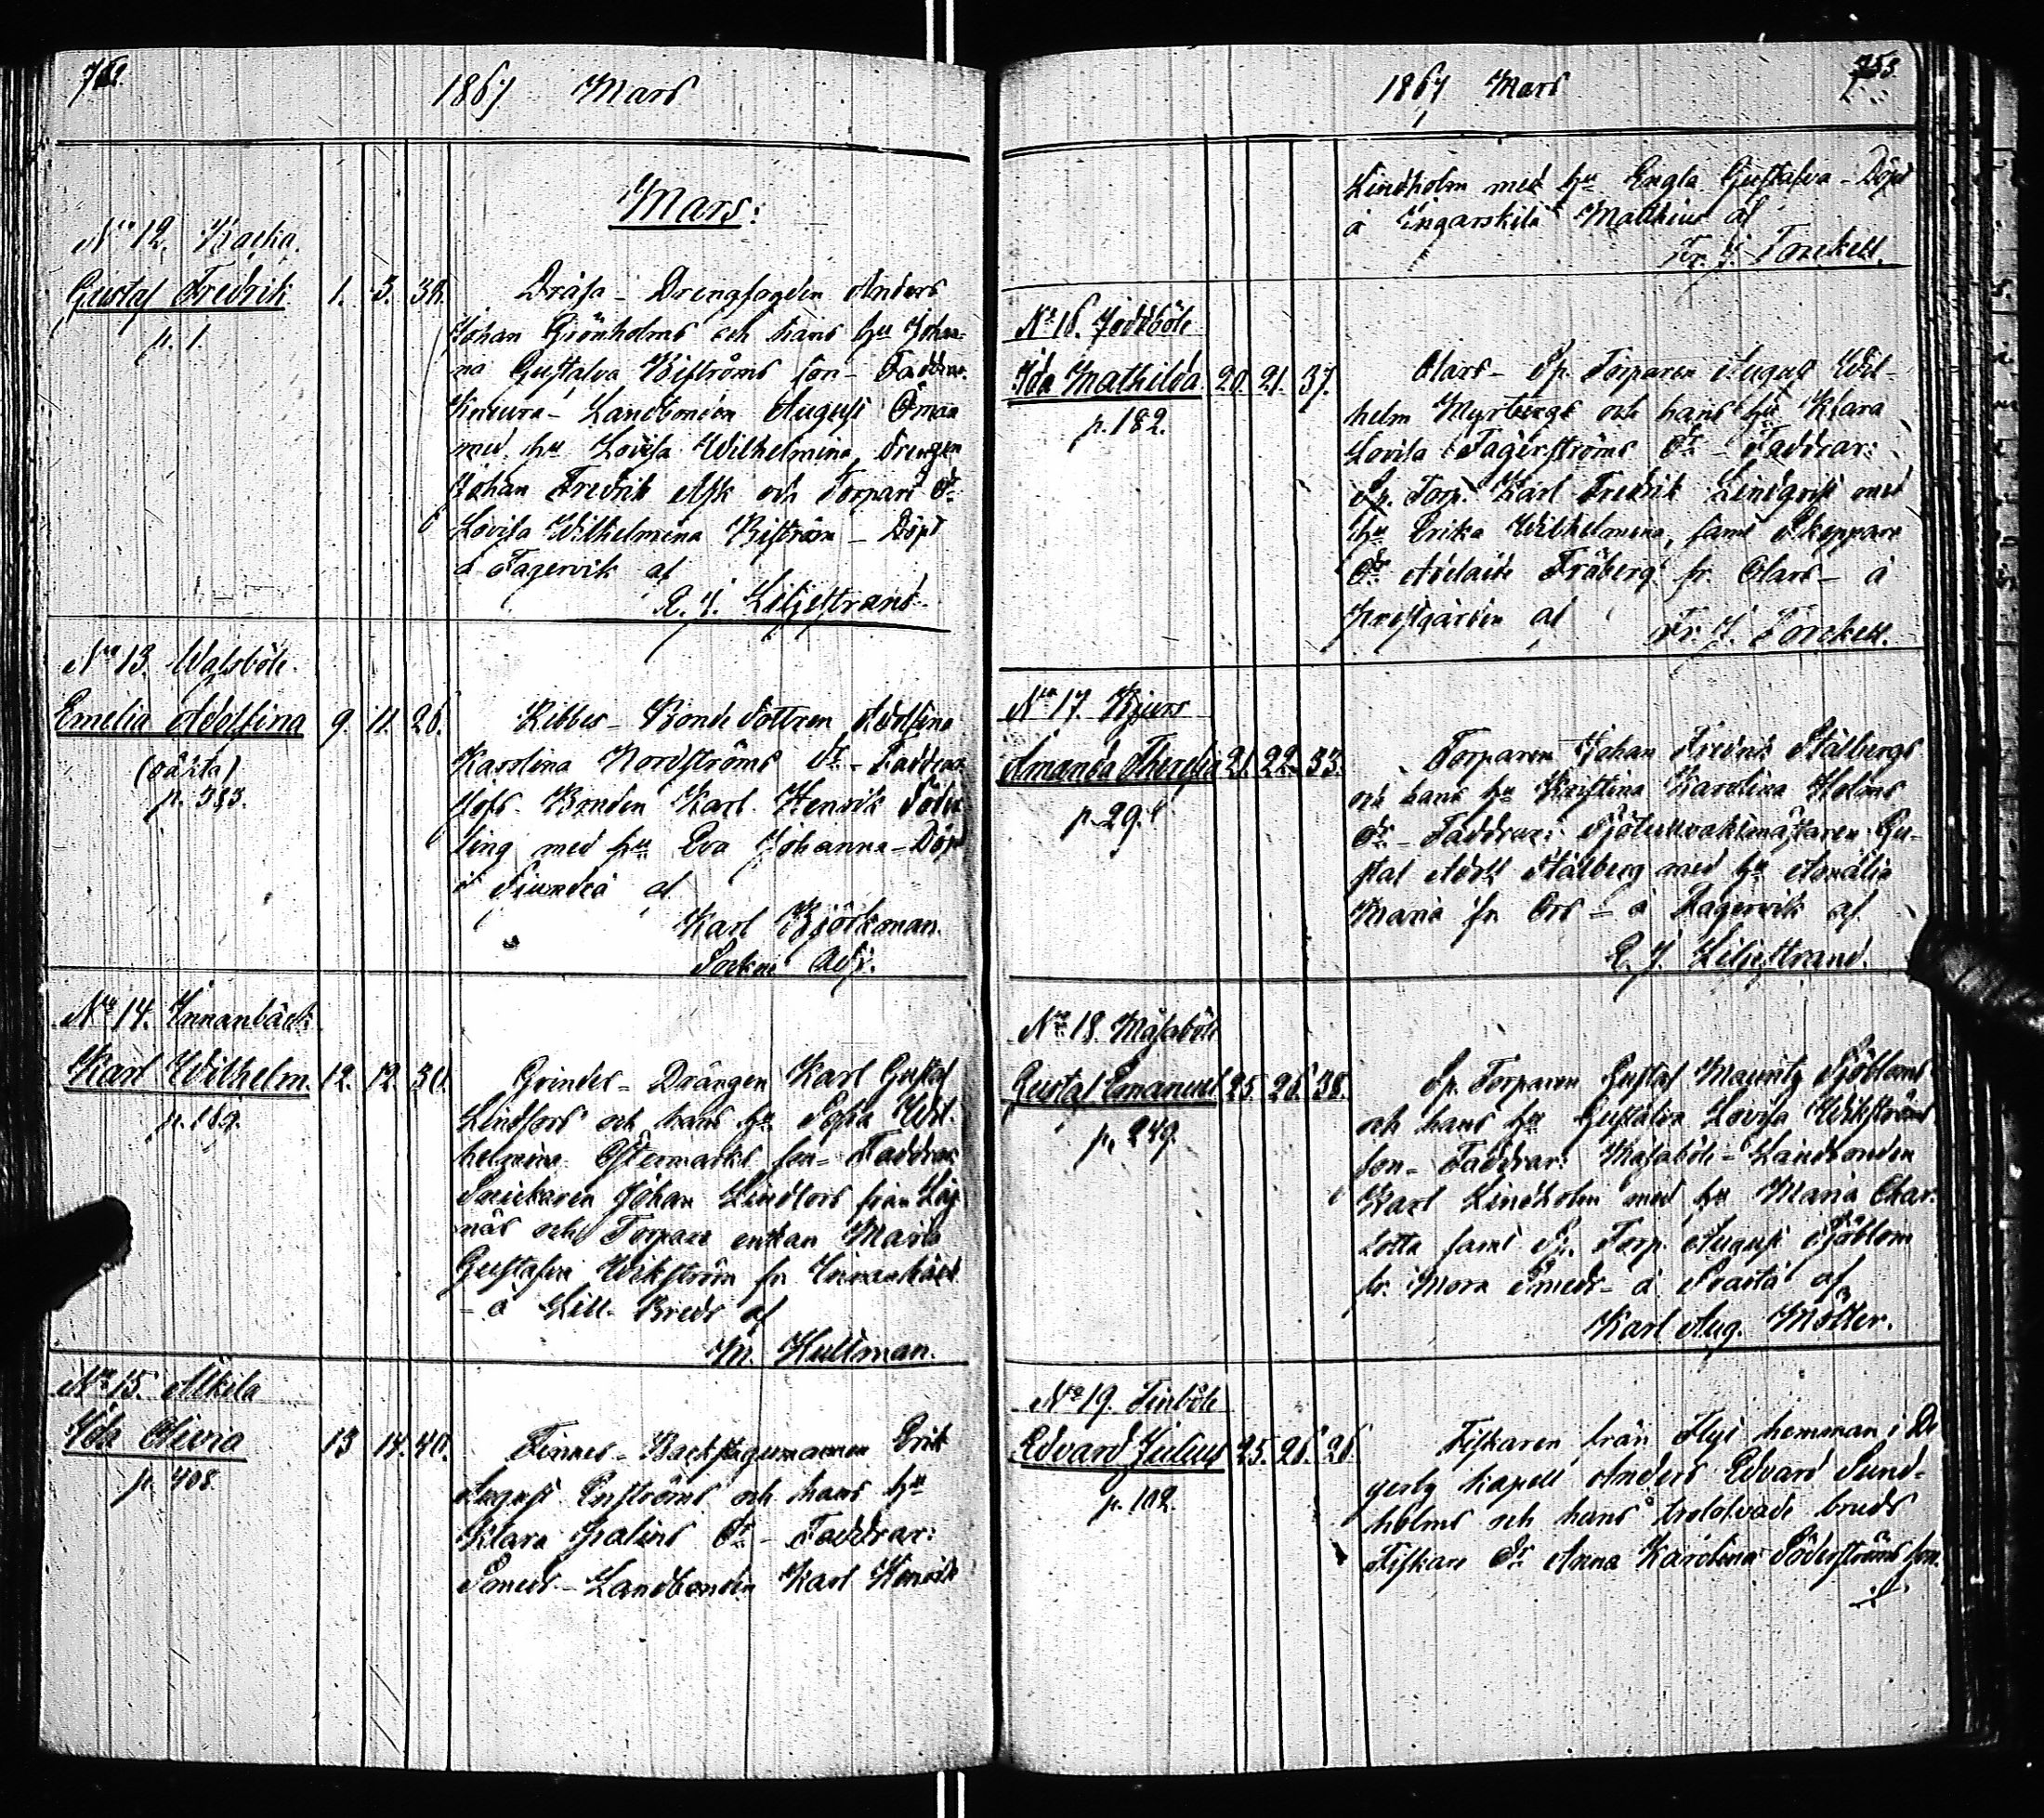 1867 Mars
Mars:
No 12. Backa.
Gustaf Fredrik 1. 3. 38.
p. 1.
Dråsa - Drengfogden Anders
Johan Grönholms och hans hu Johan-
na Gustafva Biströms son - Faddrar
Landbonden August Öman
med hu Lovisa Wilhelmina, Drengen
Johan Fredrik Ask och Torpare dr
Lovisa Wilhelmina Biström - Döpt
å Fagervik af
E. J. Liljestrand.
No 13. Walsböle.
Emelia Adolfina 9. 11. 26.
(oäkta)
p. 383.
Ribbes - Bonde dottren Adolfina
Karolina Nordströms dr - Faddrar
Bonden Karl Henrik Söder-
ling med hu Eva Johanna - Döpt
i Siundeå af
Karl Björkman.
Sockne Adj.
No 14. Innanbäck
Karl Wilhelm. 12. 12. 30.
p. 169.
Grinders - Drängen Karl Gustaf
Lindfors och hans hu Sofia Wil-
helmina Östermarks son - Faddrar
Snickaren Johan Lindfors från
näs och Torpare enkan Maria
Gustafva Wikström fr Innanbäck
- å Lill-Breds af
Hultman.
No 15. Alkila
Ida Olivia 13 14. 40.
p. 408
Finnes - Backstugumannen Erik
August Enströms och hans hu
Klara Malins dr - Faddrar:
Smeds - Landbonden Karl Henrik
1867 Mars
Lindholm med hu Engla Gustafva - Döpt
å Ingarskila Matthius af
Fr. J. Forckell.
No 16. Joddböle
Ida Mathilda 20. 21. 37.
p. 182.
Olars - Sp. Torparen August Wil-
helm Myrbergs och hans hu Klara
Lovisa Fagerströms dr - Faddrar:
Sp. Torp. Karl Fredrik Lindqvist med
hu Erika Wilhelmina, samt Skeppare
dr Adelaide Fröberg fr. Olars - å
Prestgården af Fr. J. Forckell.
No 17. Bjurs
Amanda Theresia 21. 22. 33.
p. 29.
Torparen Johan Fredrik Stålbergs
och hans hu Kristina Karolina Holms
dr - Faddrar: Sjötullvaktmästaren Gu-
staf Adolf Stålberg med hu Amalia
Maria fr. Ors - å Fagervik af
E. J. Liljestrand.
No 18. Masaböle
Gustaf Emanuel 25. 26. 38.
p. 249.
Sp. Torparen Gustaf Mauritz Sjöbloms
och hans hu Gustafva Lovisa Wikströms
son - Faddrar: Masaböle - Landbonden
Karl Lindholm med hu Maria Char-
lotta samt Sp. Torp. August Sjöblom
fr. Mora Smeds - å Svartå af
Karl Aug. Möller.
No 19. Finböle
Edvard Julius 25. 26. 26.
p. 102.
Fiskaren från hemman i De-
gerby kapell Anders Edvard Sund-
holms och hans trolofvade bruds
Fiskare dr Anna Karolina Söderströms son